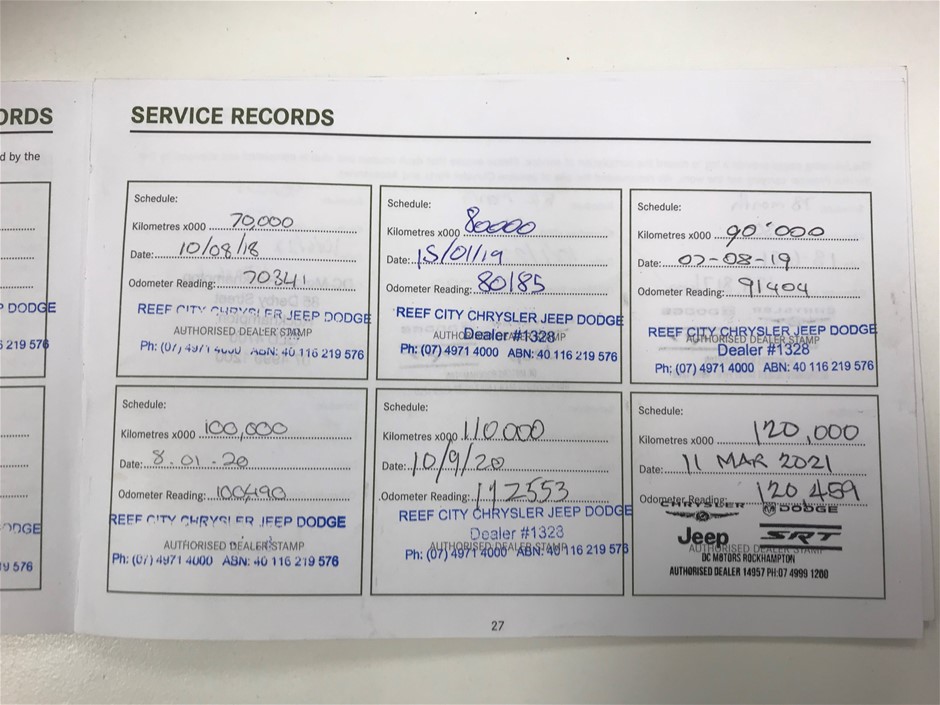 ORDS
d by the
P DODGE
5 219 576
DGE
19 576
SERVICE RECORDS
Schedule:
Kilometres x000 70,000
Date: 10/08/18
Odometer Reading: 70341
REEF CITY CHRYSLER JEEP DODGE
AUTHORISED DEALER STAMP
Ph: (07) 4971 4000 ABN: 40 116 219 576
Schedule:
Kilometres x000 80000
Date: 15/01/19
Odometer Reading: 80185
REEF CITY CHRYSLER JEEP DODGE
AUTHORISED DEALER STAMP
Dealer #1328
Ph: (07) 4971 4000 ABN: 40 116 219 576
Schedule:
Kilometres x000 90'000
Date: 02-08-19
Odometer Reading: 91404
REEF CITY CHRYSLER JEEP DODGE
AUTHORISED DEALER STAMP
Dealer #1328
Ph: (07) 4971 4000 ABN: 40 116 219 576
Schedule:
Kilometres x000 100,000
Date: 8.01.20
Odometer Reading: 100490
REEF CITY CHRYSLER JEEP DODGE
AUTHORISED DEALER STAMP
Ph: (07) 4971 4000 ABN: 40 116 219 576
Schedule:
Kilometres x000 110000
Date: 10/9/20
Odometer Reading: 112553
REEF CITY CHRYSLER JEEP DODGE
Dealer #1328
AUTHORISED DEALER STAMP
Ph: (07) 4971 4000 ABN: 40 116 219 576
Schedule:
Kilometres x000 120,000
Date: 11 MAR 2021
Odometer Reading: 120459
CHRYSLER DODGE
Jeep SRT
AUTHORISED DEALER STAMP
DC MOTORS ROCKHAMPTON
AUTHORISED DEALER 14957 PH:07 4999 1200
27